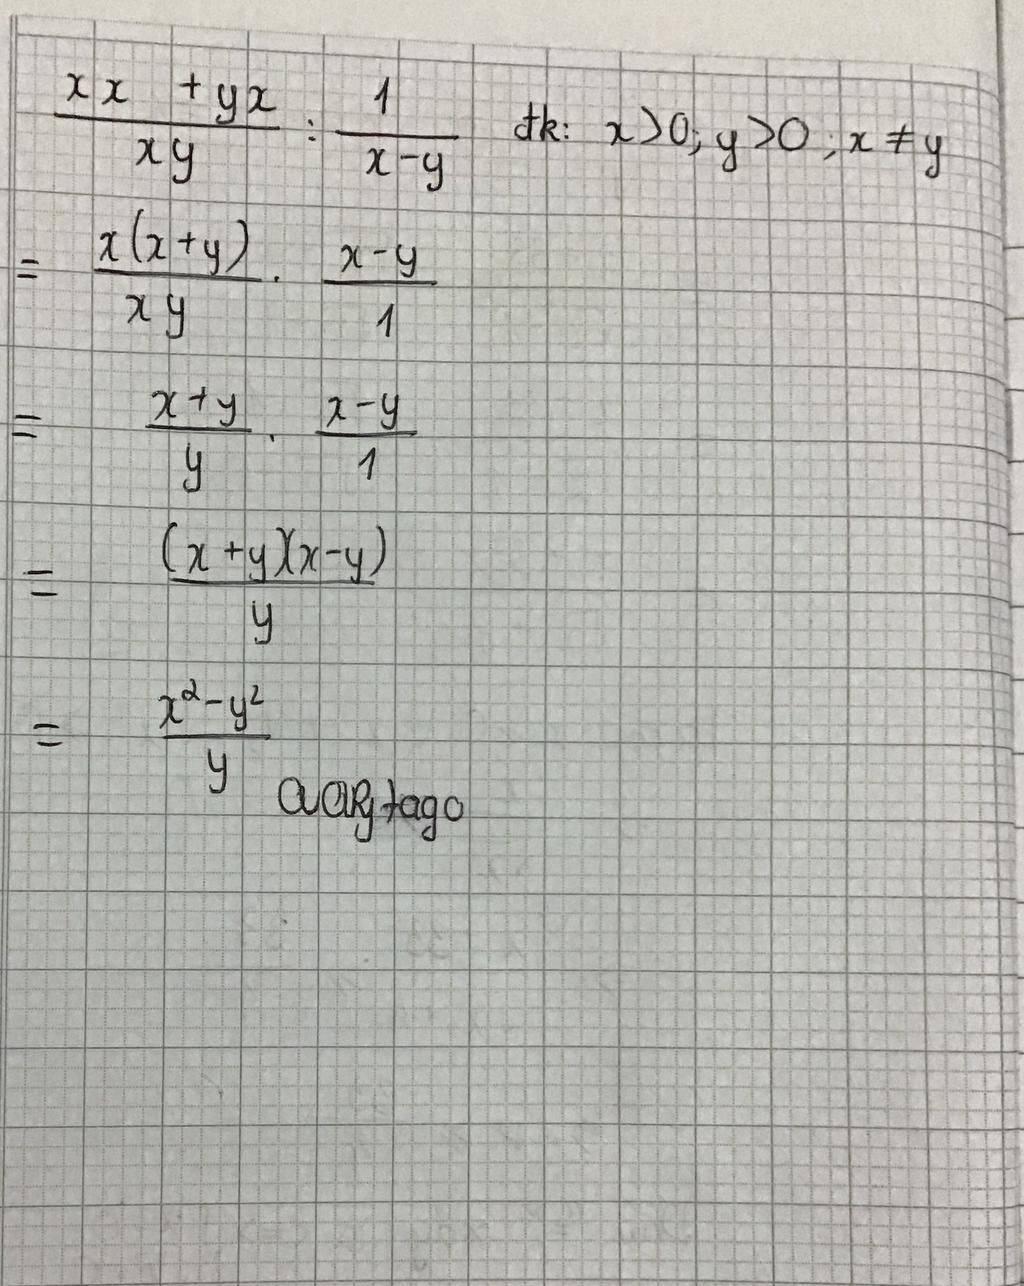 \frac{xx + yx}{xy} : \frac{1}{x-y} đk: x>0; y>0; x ≠ y
= \frac{x(x+y)}{xy} . \frac{x-y}{1}
= \frac{x+y}{y} . \frac{x-y}{1}
= \frac{(x+y)(x-y)}{y}
= \frac{x²-y²}{y}